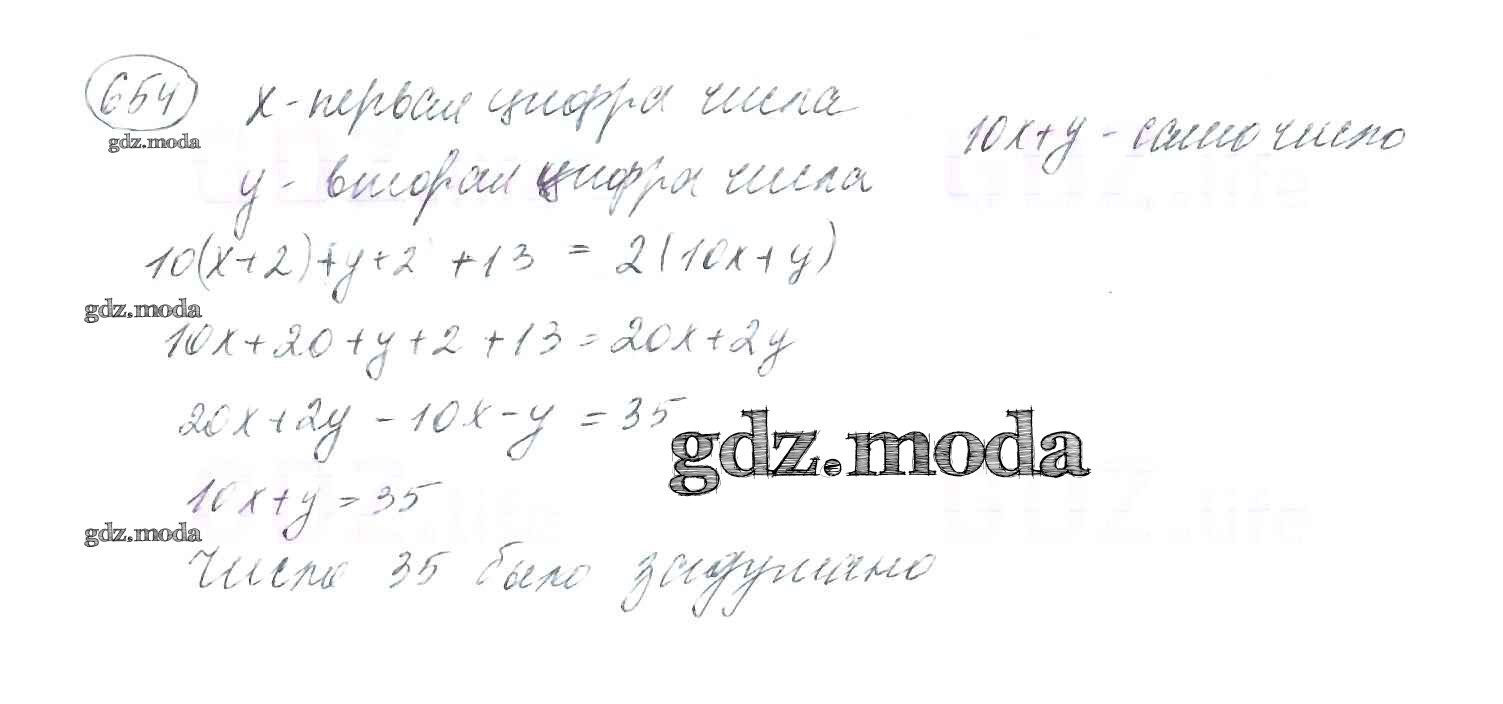 654 x - первая цифра числа
gdz.moda
10x+y - само число
y - вторая цифра числа
10(x+2)+y+2 +13 = 2(10x+y)
gdz.moda
10x+20+y+2+13=20x+2y
20x+2y-10x-y=35
gdz.moda
10x+y=35
gdz.moda
Число 35 было задумано